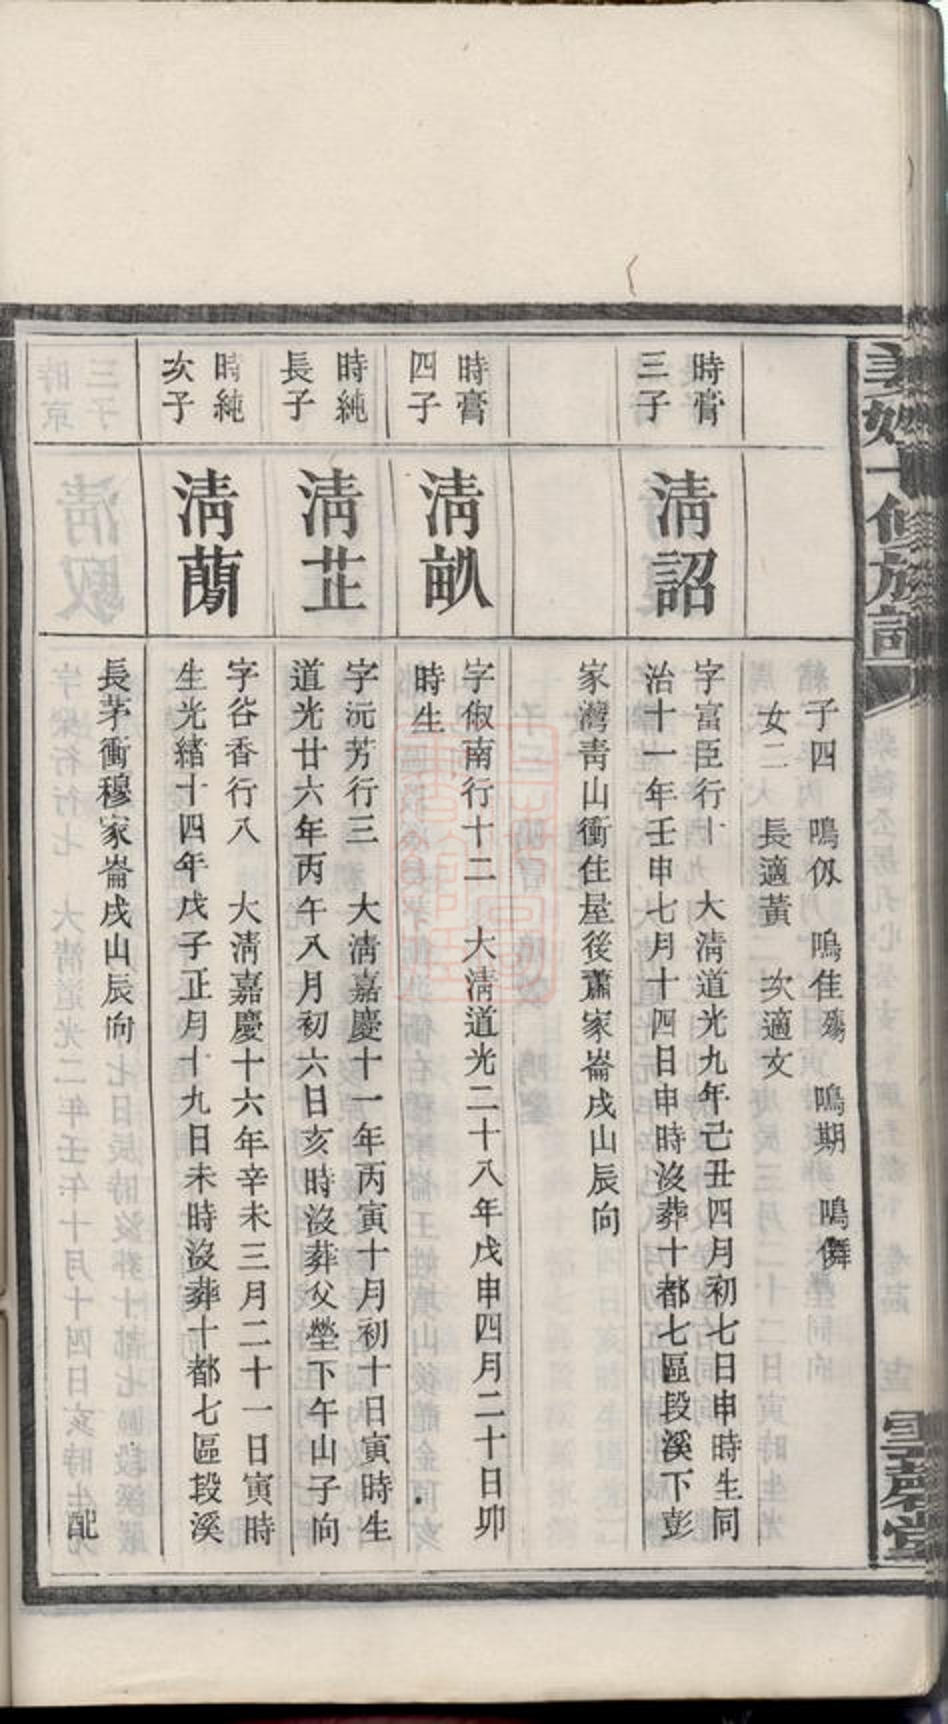 子四 鳴仭 鳴佳殤 鳴期 鳴儕
女二 長適黃 次適文
時膏三子
清詔
字富臣行十 大清道光九年己丑四月初七日申時生同
治十一年壬申七月十四日申時沒葬十都七區段溪下彭
家灣青山衝住屋後蕭家崙戌山辰向
時膏四子
清畝
字俶南行十二 大清道光二十八年戊申四月二十日卯
時生
時純長子
清芷
字沅芳行三 大清嘉慶十一年丙寅十月初十日寅時生
道光廿六年丙午八月初六日亥時沒葬父塋下午山子向
時純次子
清蘭
字谷香行八 大清嘉慶十六年辛未三月二十一日寅時
生光緒十四年戊子正月十九日未時沒葬十都七區段溪
長茅衝穆家崙戌山辰向 配